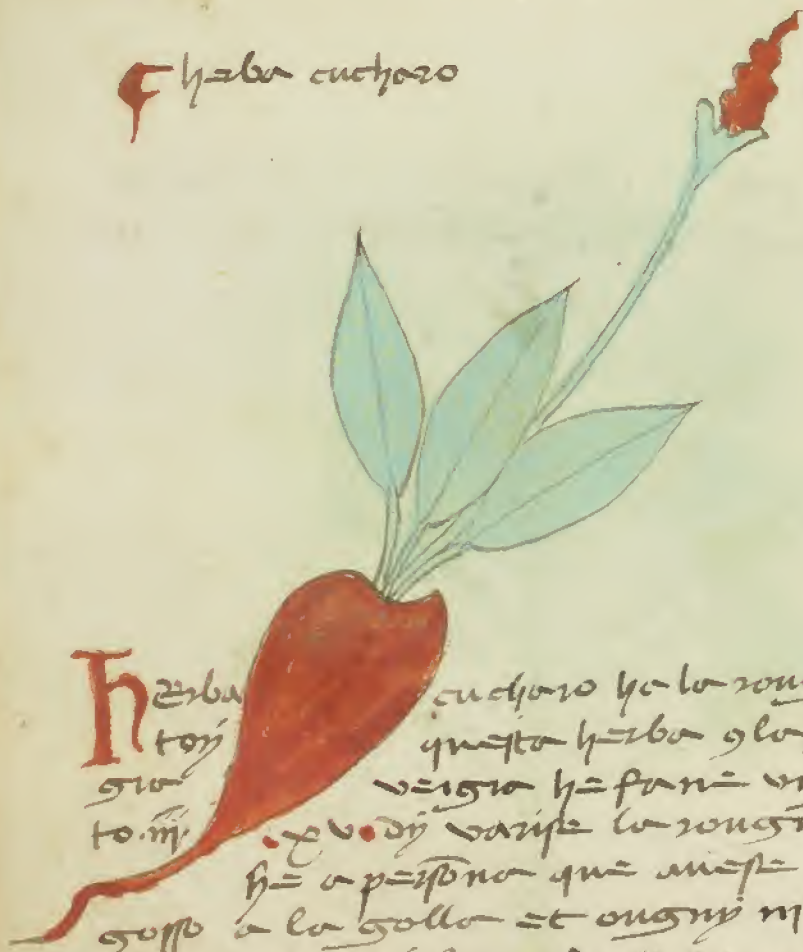 herba cucharo
herba cucharo he la roug
toÿ questa herba 9 la
gia veigia he fane un
to .iii. .xv. dÿ varise la rougn
he a persona que avese
gosso a la golla et ougnÿ m